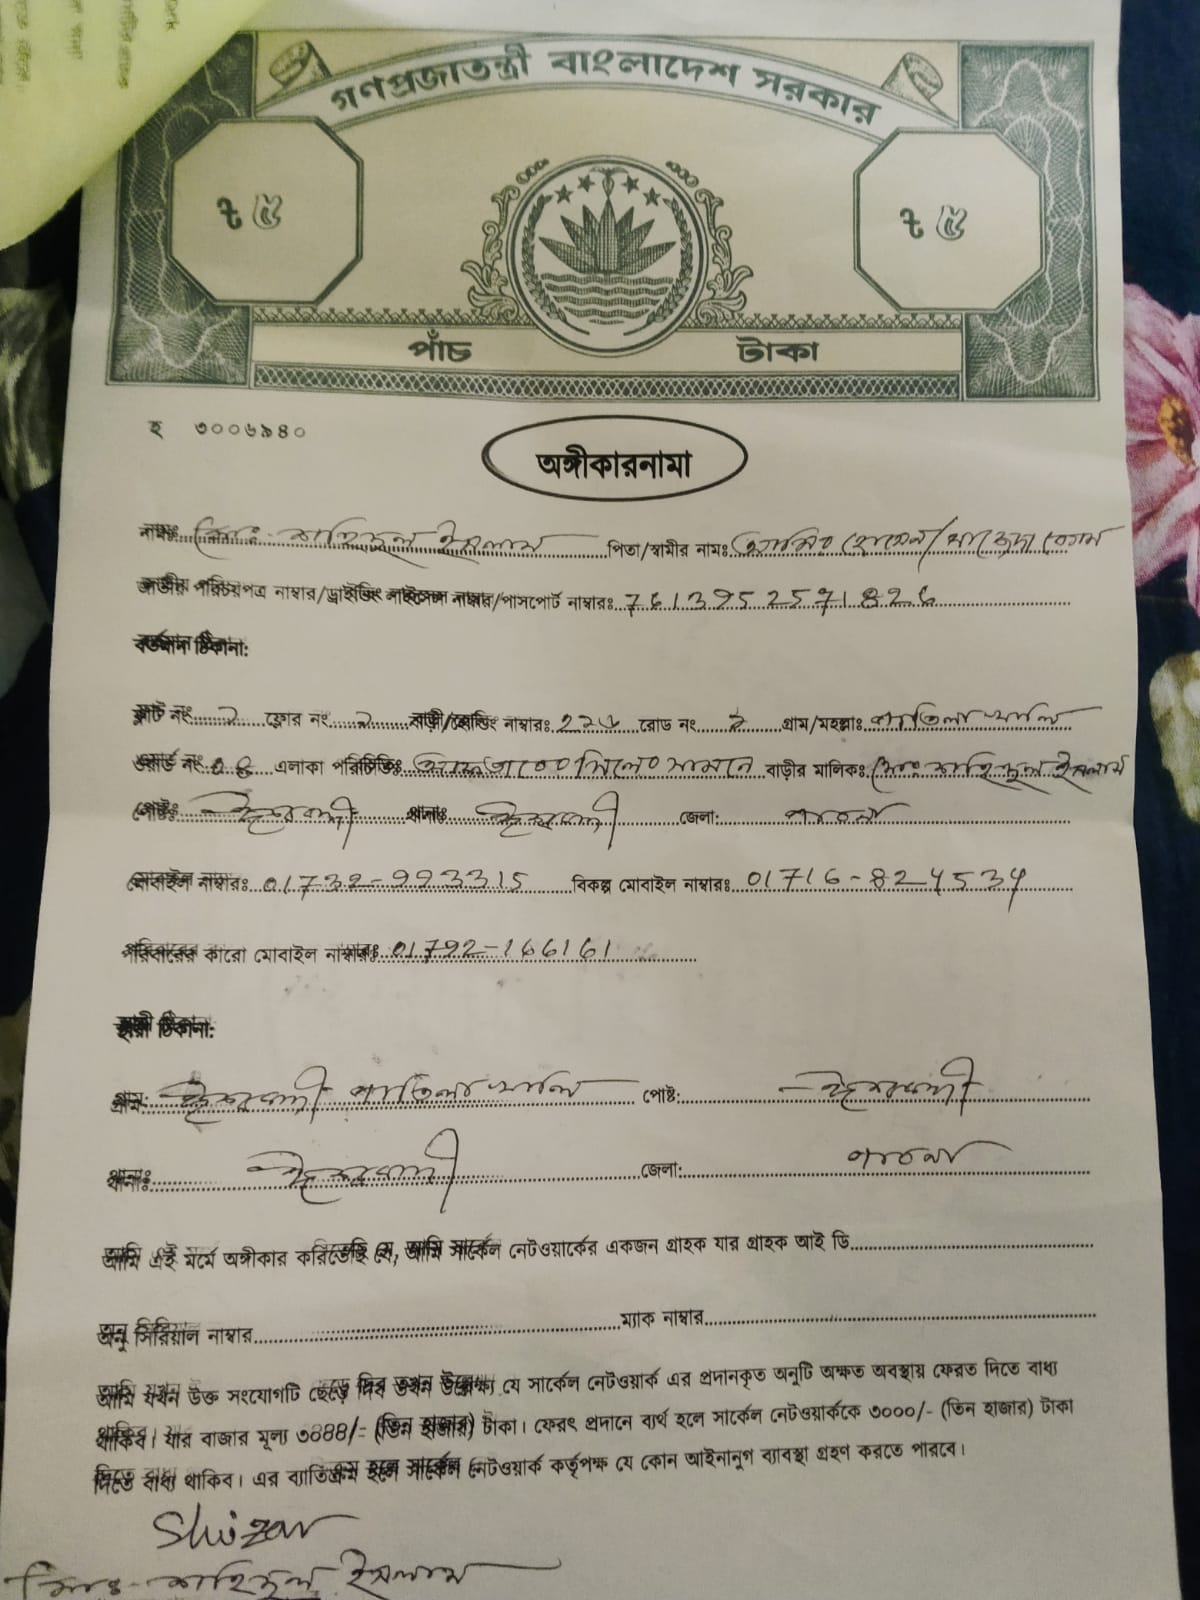 গণপ্রজাতন্ত্রী বাংলাদেশ সরকার
৳ ৫ ৳ ৫
পাঁচ টাকা
হ ৩০০৬৯৪০
অঙ্গীকারনামা
নামঃ মোঃ শাহিদুল ইসলাম পিতা/স্বামীর নামঃ
জাতীয় পরিচয়পত্র নাম্বার/ড্রাইভিং লাইসেন্স নাম্বার/পাসপোর্ট নাম্বারঃ
বর্তমান ঠিকানা:
ফ্লাট নং ফ্লোর নং বাড়ী/হোল্ডিং নাম্বারঃ রোড নং গ্রাম/মহল্লাঃ
ওয়ার্ড নং এলাকা পরিচিতিঃ সামনে বাড়ীর মালিকঃ মোঃ শাহিদুল ইসলাম
পোষ্টঃ ঈশ্বরদী থানাঃ ঈশ্বরদী জেলা: পাবনা
মোবাইল নাম্বারঃ বিকল্প মোবাইল নাম্বারঃ 01716-824534
পরিবারের কারো মোবাইল নাম্বারঃ 01792-166161
স্থায়ী ঠিকানা:
গ্রাম: ঈশ্বরদী পোষ্ট: ঈশ্বরদী
থানাঃ ঈশ্বরদী জেলা: পাবনা
আমি এই মর্মে অঙ্গীকার করিতেছি যে, আমি সার্কেল নেটওয়ার্কের একজন গ্রাহক যার গ্রাহক আই ডি
অনু সিরিয়াল নাম্বার ম্যাক নাম্বার
আমি যখন উক্ত সংযোগটি ছেড়ে দিব তখন উল্লেখ্য যে সার্কেল নেটওয়ার্ক এর প্রদানকৃত অনুটি অক্ষত অবস্থায় ফেরত দিতে বাধ্য
থাকিব। যার বাজার মূল্য (তিন হাজার) টাকা। ফেরৎ প্রদানে ব্যর্থ হলে সার্কেল নেটওয়ার্ককে ৩০০০/- (তিন হাজার) টাকা
দিতে বাধ্য থাকিব। এর ব্যতিক্রম হলে সার্কেল নেটওয়ার্ক কর্তৃপক্ষ যে কোন আইনানুগ ব্যাবস্থা গ্রহণ করতে পারবে।
মোঃ শাহিদুল ইসলাম